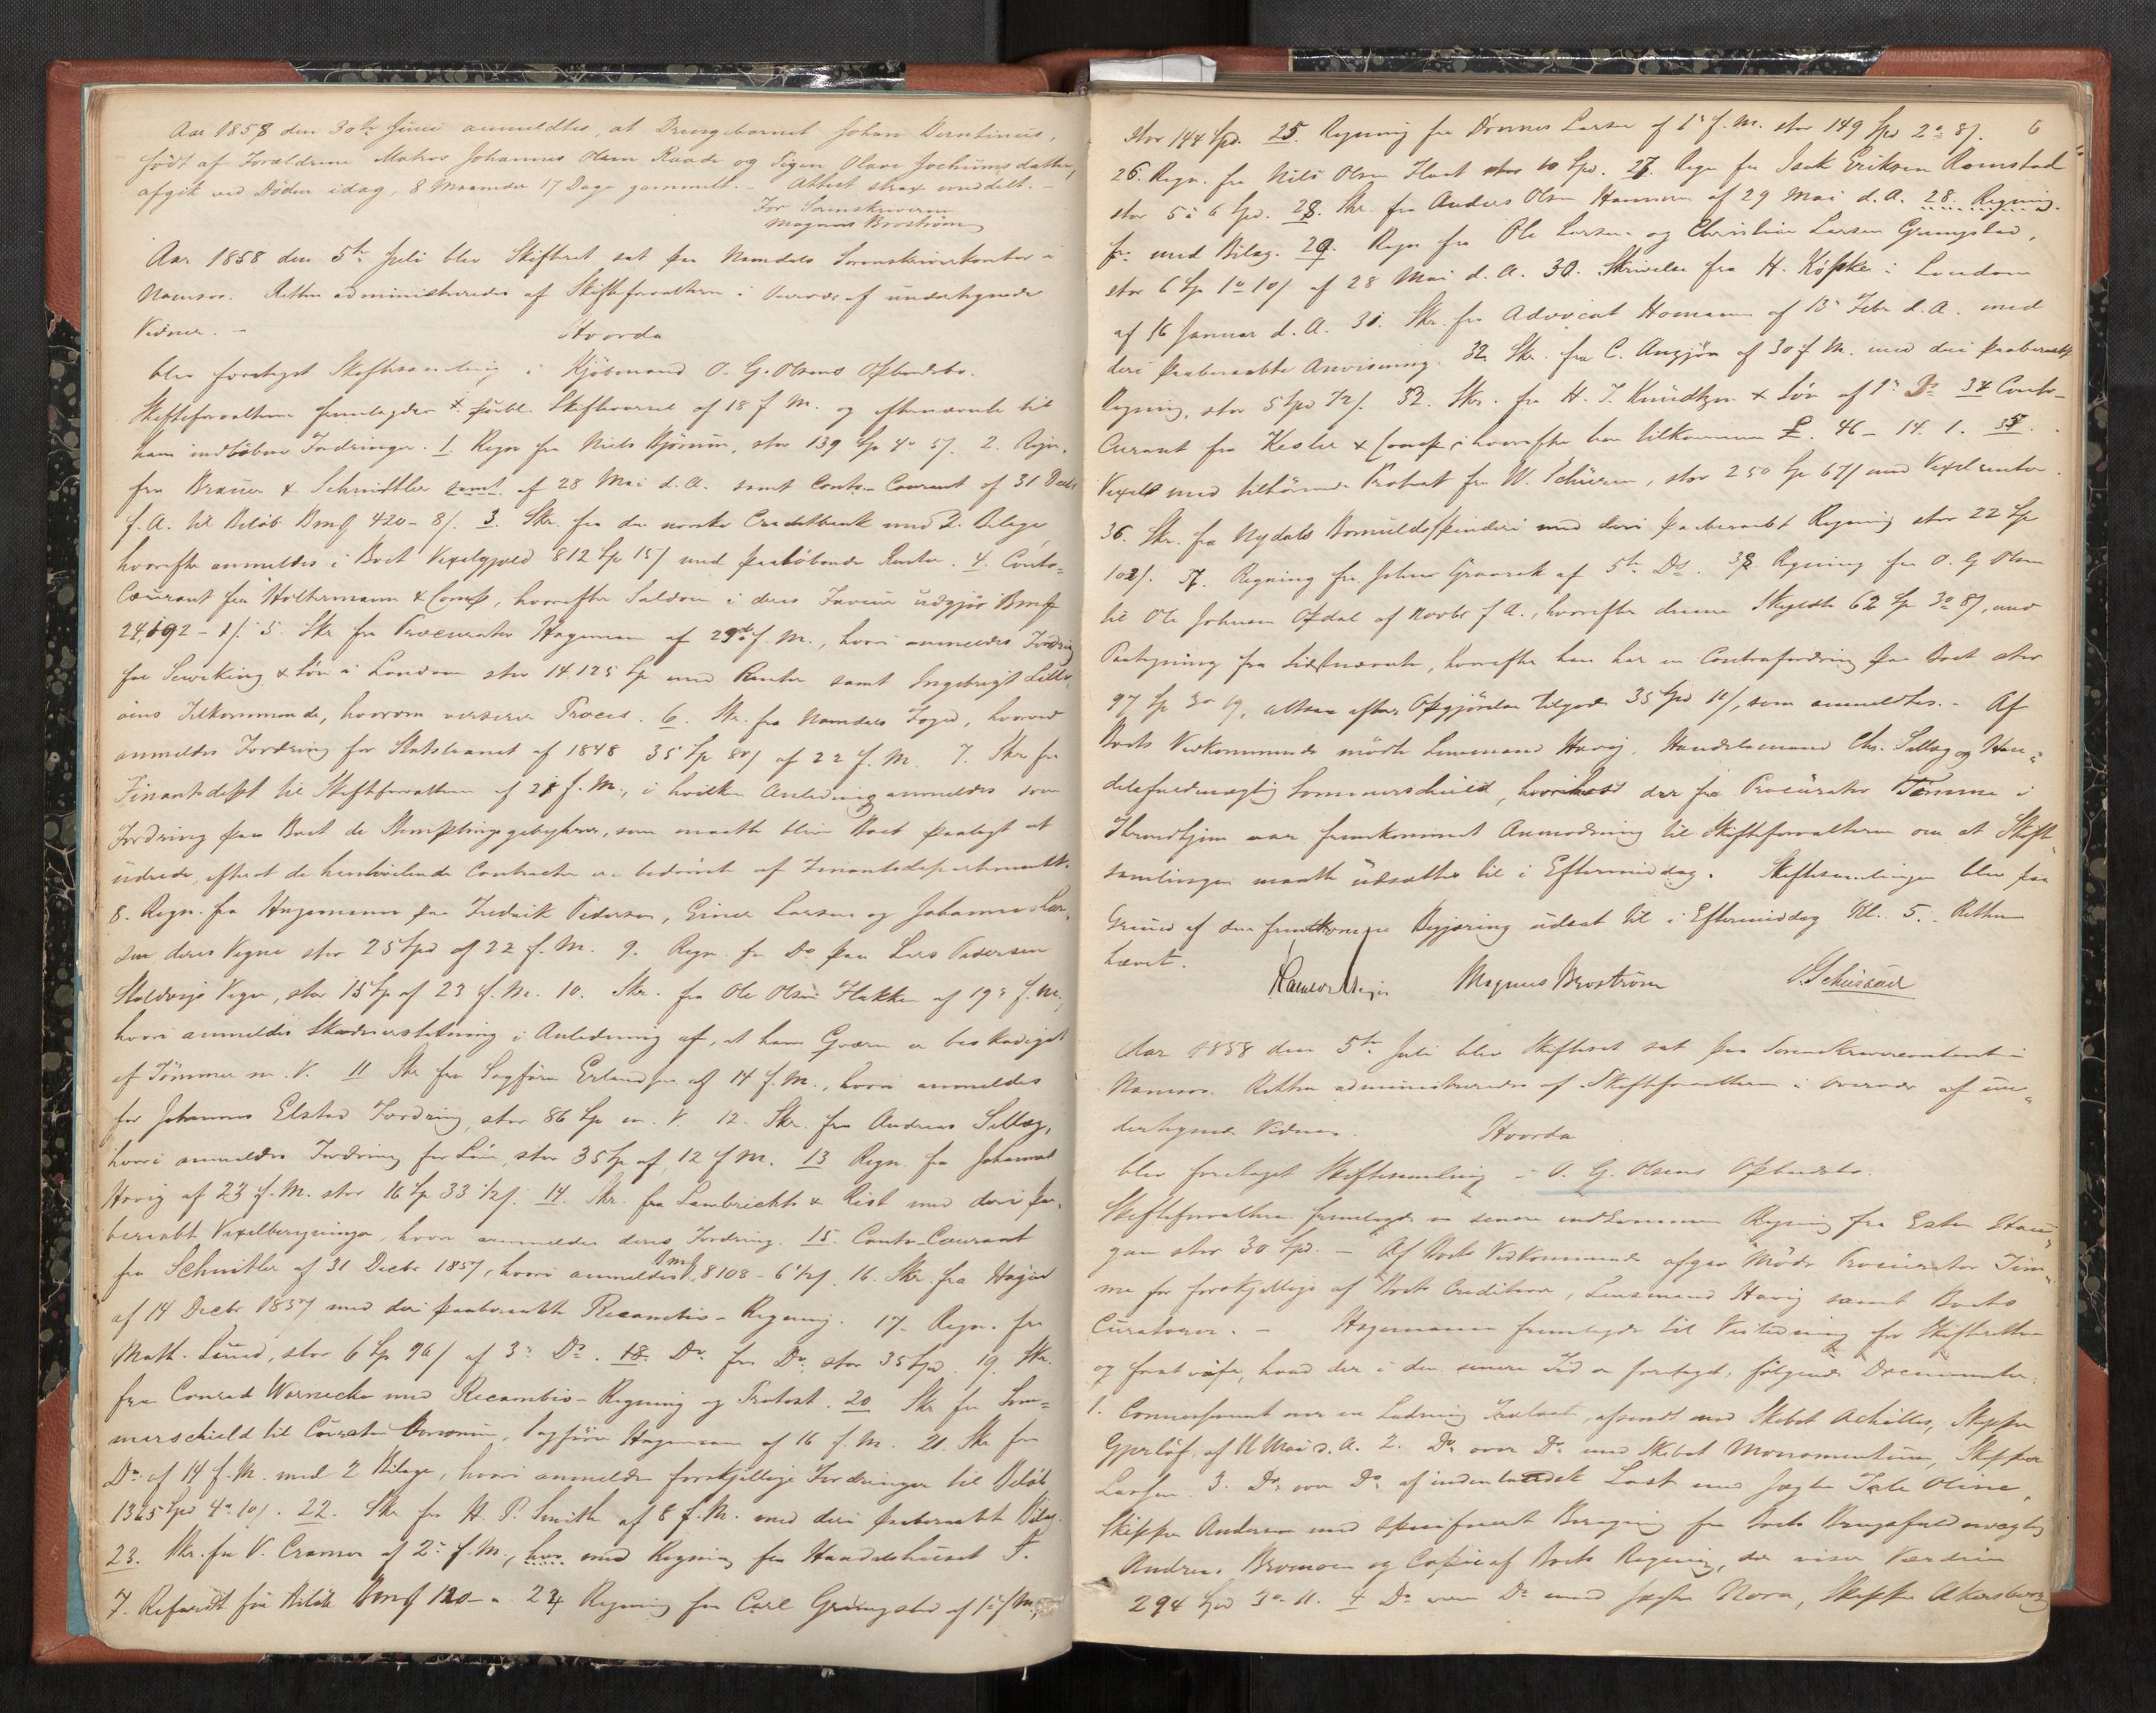 Aar 1858 den 30te Juni anmeldtes, at Drengebarnet Johan Berntinus,
født af Forældrene Matros Johannes Olsen Raade og Pigen Olava Jochumsdatter,
afgik ved Døden idag, 8 Maaneder 17 Dage gammelt. - Attest strax meddelt. -
For Sorenskriveren
Magnus Brostrøm
Aar 1858 den 5te Juli blev Skifteret sat paa Namdals Sorenskriverkontor i
Namsos. Retten administreredes af Skifteforvalteren i Overvær af undertegnede
Vidner. - Hvorda
blev foretaget Skiftesamling i Kjøbmand O. G. Olsens Opbudsbo.
Skifteforvalteren fremlagde publ. Skiftevarsel af 18 f. M. og efternævnte til
ham indløbne Fordringer. 1. Regn. fra Niels Bjørum, stor 139 Sp 4 5/. 2. Regn.
fra Brauer & Schnitler samt af 28 Mai d. A. samt Conto-Courant af 31 Decbr
f. A. til Beløb Bmk 420-8/. 3. Skr. fra den norske Creditbank med 2 Bilage,
hvorefter anmeldes i Boet Vexelgjæld 812 Sp 15/ med paaløbende Renter. 4. Conto-
Courant fra Holtermann & Comp, hvorefter Saldoen i deres Faveur udgjør Bmk
24,192-1/. 5. Skr fra Procurator Hagemann af 29de f. M., hvori anmeldes Fordring
for Seweking & Søn i London stor 14.125 Sp med Renter samt Ingebrigt Lille-
øens Tilkommende, hvorom verserer Proces. 6. Skr. fra Namdals Foged, hvorved
anmeldes Fordring for Statslaanet af 1848 35 Sp 80/ af 22 f. M. 7. Skr fra
Finantsdept til Skifteforvalteren af 21 f. M., i hvilken Anledning anmeldes som
Fordring paa Boet de Stemplingsgebyhrer, som maatte blive Boet paalagt at
udrede, efterat de henhørende Contracter ere bedømte af Finantsdepartementet.
8. Regn. fra Hagemann paa Fredrik Pedersen, Einer Larsen og Johannes Lar-
sen deres Vegne stor 25 Spd af 22 f. M. 9. Regn. fr Do paa Lars Pedersen
Vegne, stor 15 Sp af 23 f. M. 10. Skr. fra Ole Olsen Flakken af 19de f. M.,
hvori anmeldes Skadeserstatning i Anledning af, at hans Gværn er beskadiget
af Tømmer m. V. 11 Skr fra Sagfører Erlandsen af 14 f. M., hvori anmeldes
for Johannes Elstad Fordring, stor 86 Sp m. V. 12. Skr. fra Andreas Sellæg,
hvori anmeldes Fordring for Løn, stor 35 Sp af 12 f M. 13 Regn. fra Johannes
Havig af 23 f. M. stor 16 Sp 33 1/2/. 14. Skr. fra Lambrechts & Rist med deri paa-
beraabt Vexelberegninger, hvori anmeldes deres Fordring. 15. Conto-Courant
fra Schnitler af 31 Decbr 1857, hvori anmeldes Bmk 8108-6 1/2/. 16. Skr. fra Hagen
af 14 Decbr 1857 med deri paaberaabte Recambio-Regning. 17. Regn. fra
Math. Lund, stor 6 Sp 96/ af 3de Do. 18. Do fra Do stor 35 Spd. 19. Skr.
fra Conrad Warnecke med Recambio-Regning og Protest. 20 Skr fra Som-
merschield til Curator bonorum, Sagfører Hagemann af 16 f. M. 21. Skr fra
Do af 14 f. M. med 2 Bilage, hvori anmeldes forskjellige Fordringer til Beløb
1365 Spd 4 10/. 22. Skr fra H. P. Smith af 8 f. M. med deri paaberaabt Bilag.
23. Skr. fra V. Cramer af 2de f. M., hvor med Regning fra Handelshuset
for Beløb Bmk 120 - 24 Regning fra Carl Grungstad af 1ste f M.,
6
stor 144 Spd. 25. Regning fra Dønnes Larsen af 1ste f. M. stor 149 Spd 2 8/.
26. Regn. fra Nils Olsen stor 10 Spd. 27. Regn fra Isak Eriksen Romstad
stor 5 à 6 Spd. 28. Skr. fra Anders Olsen af 29 Mai d. A. 28. Regning.
fra med Bilag. 29. Regn fra Ole Larsen og Christian Larsen Grungstad,
stor 6 Sp 1 10/ af 28 Mai d. A. 30. Skrivelse fra H. Köpke i London
af 16 Januar d. A. 31. Skr. fra Advocat Homann af 15 Febr d. A. med
deri paaberaabte Anvisning. 32 Skr. fra C. Angjøn af 30 f M. med deri paaberaabt
Regning, stor 5 Spd 72/. 33. Skr. fra H. I. Knudtzon & Søn af 1ste Do 34 Conto-
Curant fra Kesler & Comp, hvorefter han tilkommer £. 46-14. 1. 35.
Vexel med tilhørende Protest fra W. Schüren, stor 250 Sp 67/ med Vexelrenter.
36. Skr. fra Nydals Bomuldsspinderi med deri paaberaabt Regning stor 22 Sp
102/. 37. Regning fra Johan af 5te Do. 38. Regning fra O. G Olsen
til Ole Johnsen Opdal af Novbr f A., hvorefter denne skylder 62 Sp 3 8/, med
Paategning fra Sidstnævnte, hvorefter han har en Contrafordring paa Boet stor
97 Sp 3 19, altsaa efter Opgjørelse tilgode 35 Spd 11/, som anmeldtes. - Af
Boets Vedkommende mødte Lensmand Havig, Handelsmand Chr. Sellæg og Han-
delsfuldmægtig Sommerschield, hvorhost der fra Procurator Tømme i
Throndhjem var fremkommet Anmodning til Skifteforvalteren om at Skifte-
samlingen maatte udsættes til i Eftermiddag. Skiftesamlingen blev paa
Grund af den fremkomne Begjæring udsat til i Eftermiddag Kl. 5. Retten
hævet.
Magnus Brostrøm
Aar 1858 den 5te Juli blev Skifteret sat paa Sorenskrivercontoret i
Namsos. Retten administreredes af Skifteforvalteren i Overvær af un-
dertegnede Vidner. Hvorda
blev foretaget Skiftesamling i O. G. Olsens Opbudsbo.
Skifteforvalteren fremlagde en senere indkommen Regning fra Esten Hau-
gan stor 30 Spd. - Af Boets Vedkommende afgav Møde Procurator Töm-
me for forskjellige af Boets Creditorer, Lensmand Havig samt Boets
Curatorer. - Hagemann fremlagde til Veiledning for Skifteretten
og for at vise, hvad der i den senere Tid er foretaget, følgende Documenter:
1. Connossement over en Ladning Trælast, afsendt med Skibet Achilles, Skipper
af 11 Mai d. A. 2. Do over Do med Skibet Monumentum, Skipper
Larsen. 3. Do over Do af indenlandsk Last med Jagten Oline,
Skipper Andersen med specificeret Beregning fra Boets Brugsfuldmægtig
Andreas Bromoen og Copie af Boets Regning, der viser Værdien
294 Spd 3 11. 4 Do over Do med Jagten Nora, Skipper Akersberg